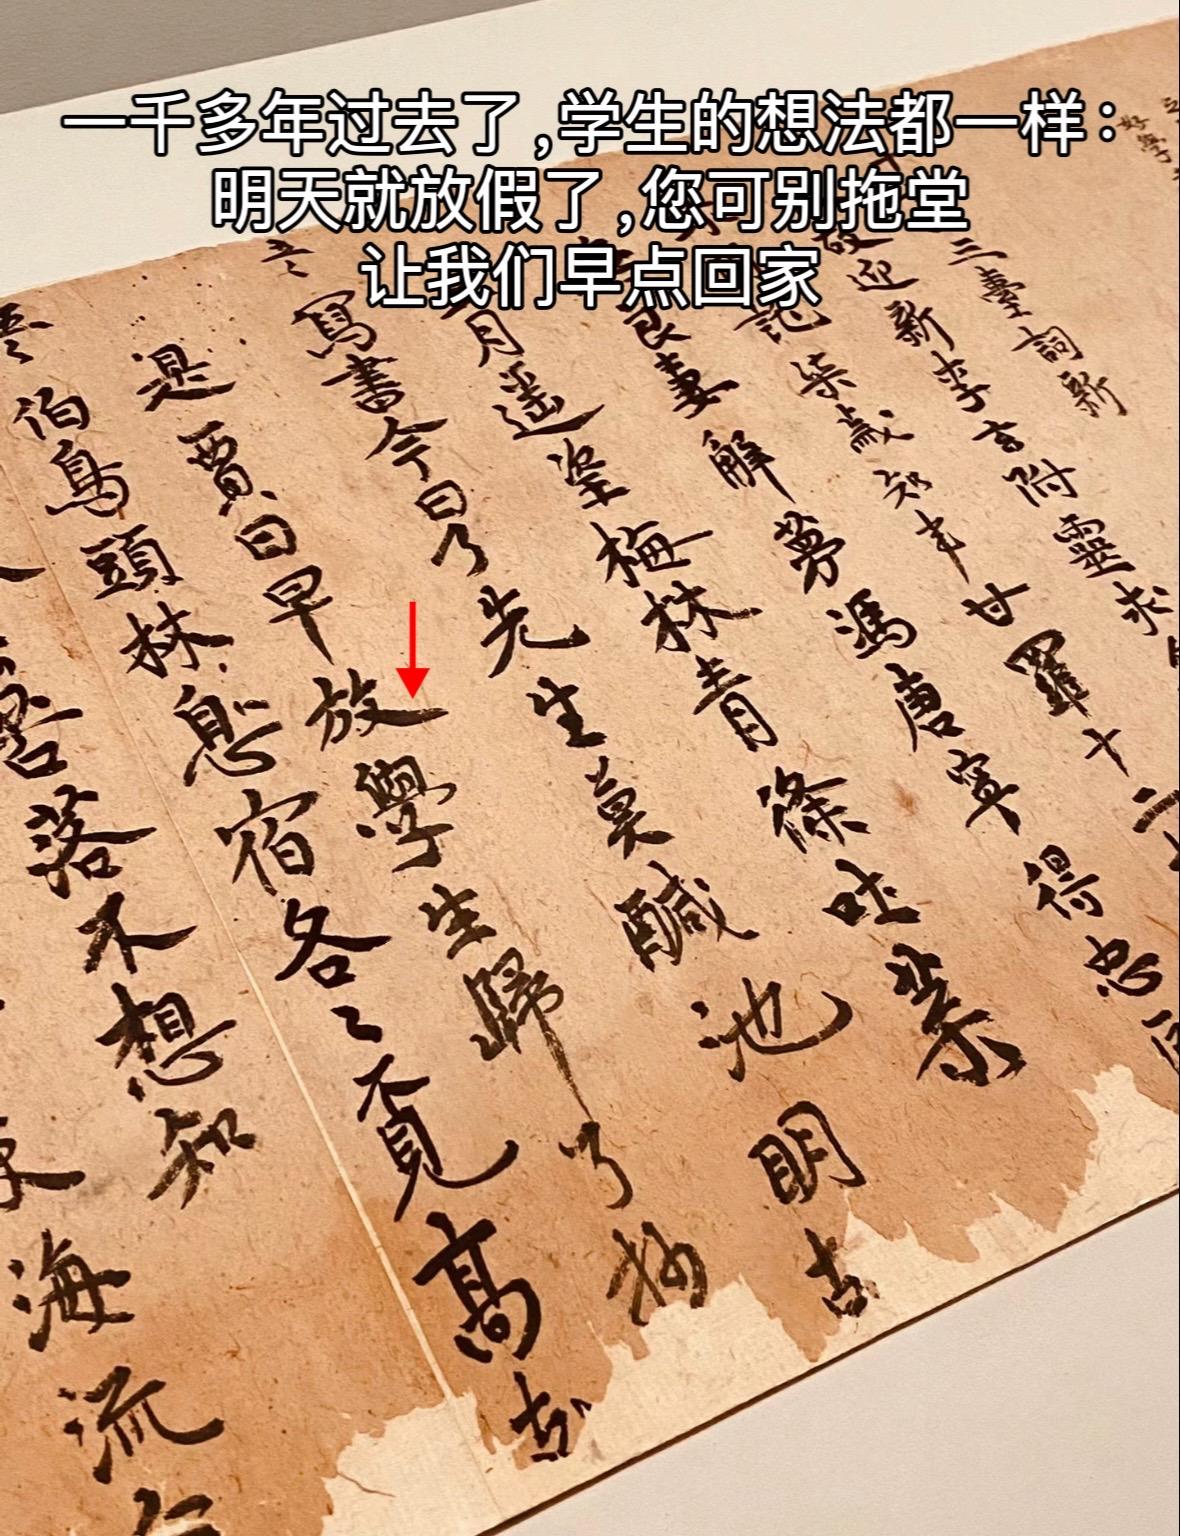 一千多年过去了,学生的想法都一样:
明天就放假了,您可别拖堂
让我们早点回家
三臺詞新
迎新李玄附靈求
誌柒歲知事甘羅十二
良妻解夢馮唐寧得忠
月遥望梅林青條吐葉
寫書今日了先生莫鹹池明
是賈日早放學生歸了
伯鳥頭林息宿各々不覓高
落不想知
海流